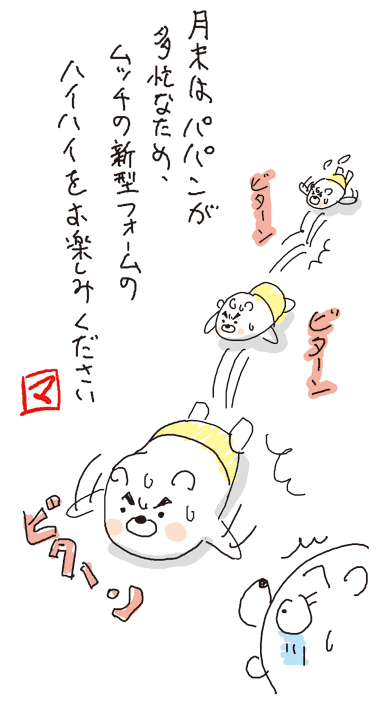 月末はパパンが
多忙なため、
ムッチの新型フォームの
ハイハイをお楽しみください
マ
ビターン
ビターン
ビターン